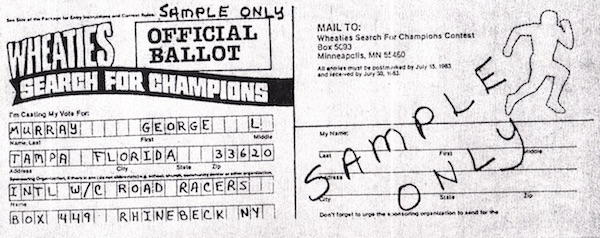 See Side of the Package for Entry Instructions and Contest Rules. SAMPLE ONLY
WHEATIES
OFFICIAL
BALLOT
SEARCH FOR CHAMPIONS
I'm Casting My Vote For:
MURRAY GEORGE L
Name, Last First Middle
TAMPA FLORIDA 33620
Address City State Zip
Sponsoring Organization, if there is any
INTL W/C ROAD RACERS
Name
BOX 449 RHINEBECK NY
MAIL TO:
Wheaties Search For Champions Contest
Box 5093
Minneapolis, MN 55460
All entries must be postmarked by July 15, 1983
and received by July 30, 1983.
My Name:
Last First Middle
Address
City State Zip
Don't forget to urge the sponsoring organization to send for the
SAMPLE
ONLY